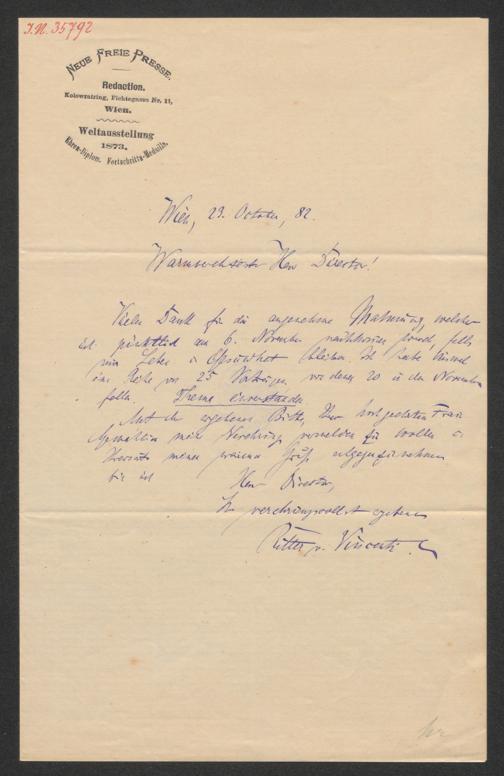 I.N. 35792
NEUE FREIE PRESSE.
Redaction.
Kolowratring, Fichtegasse Nr. 11,
Wien.
Weltausstellung
1873.
Ehren-Diplom. Fortschritts-Medaille.
Wien, 23. October, 82.
Herr Director!
Vielen Dank für die angenehme Mahnung, welcher
ich pünktlich am 6. November
Leben u Gesundheit bleiben. Ich habe
eine Reihe von 25 Vorträgen, von denen 20 in den November
fallen. Thema einverstanden.
Mit der ergebenen Bitte, Ihrer hochgeehrten Frau
Gemahlin meine Verehrung vermelden zu wollen u
meiner Grüße entgegenzunehmen
bin ich
Herr Director,
Ihr verehrungsvollst ergebener
Ritter v. Vincenti